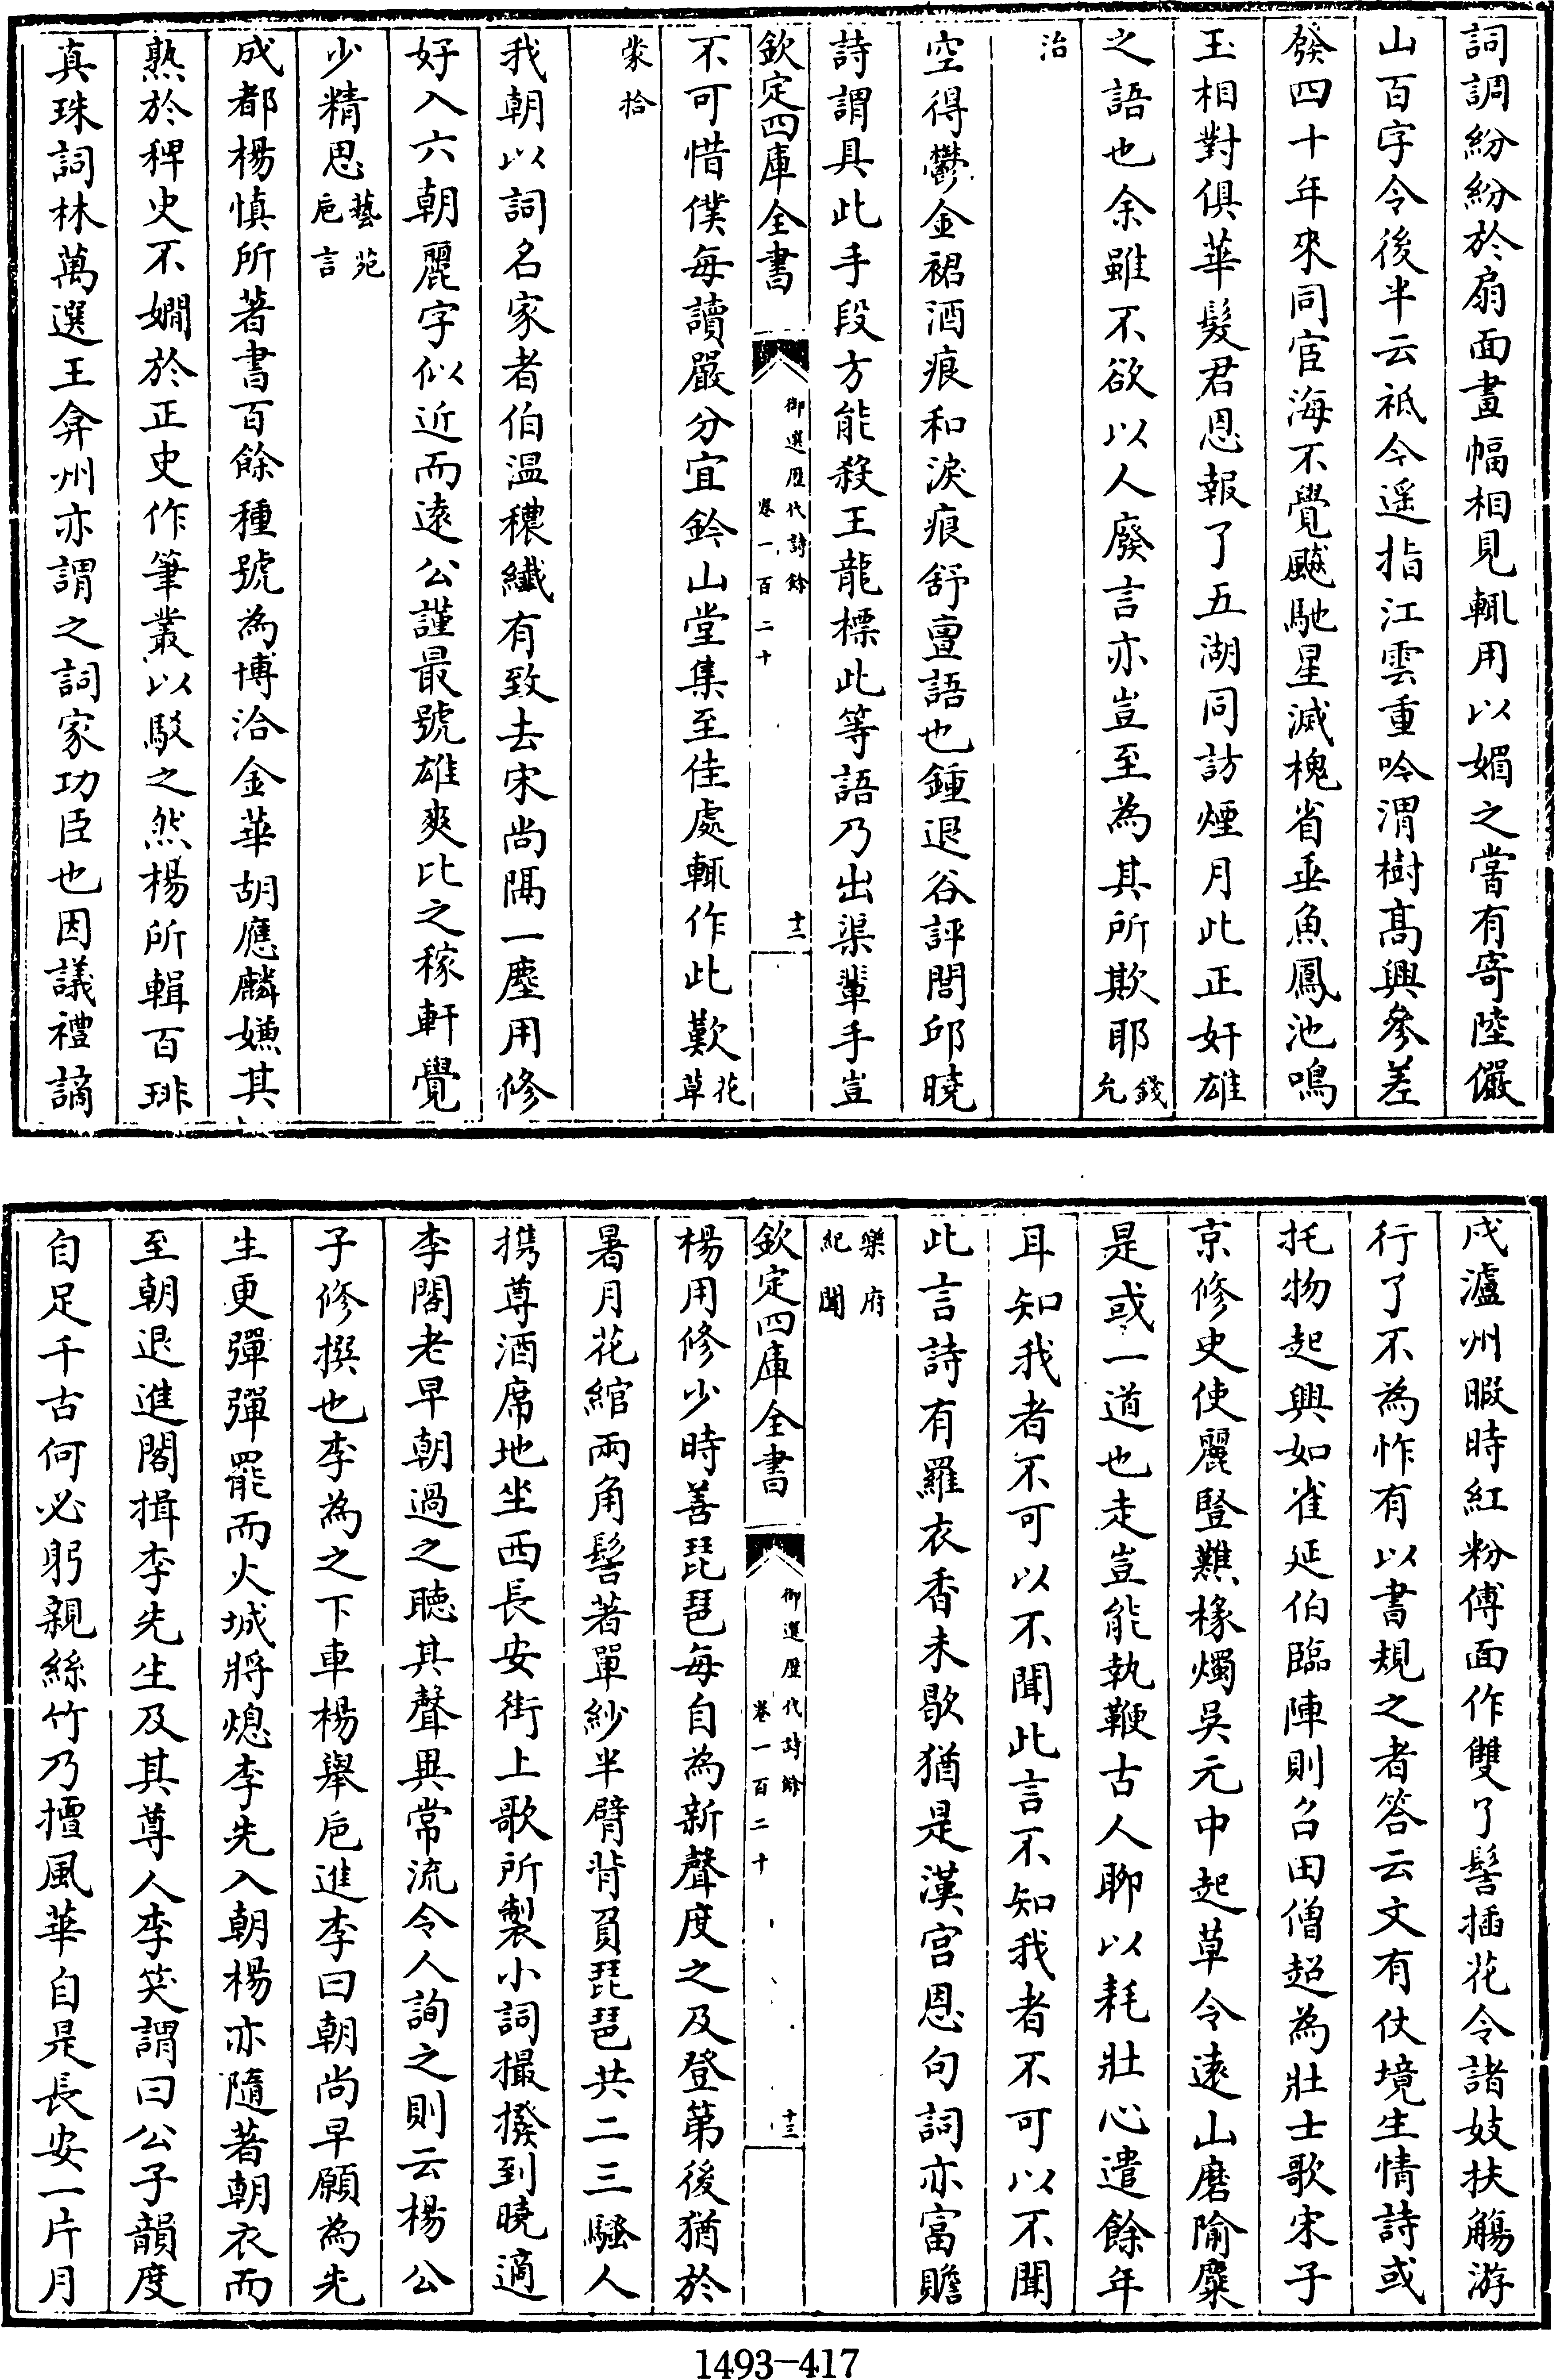 詞調紛紛於扇面畫幅相見輒用以媚之嘗有寄陸儼
山百字令後半云祗今遥指江雲重吟渭樹髙興參差
發四十年來同宦海不覺飇馳星滅槐省垂魚鳳池鳴
玉相對俱華髮君恩報了五湖同訪煙月此正奸雄
之語也余雖不欲以人廢言亦豈至為其所欺耶錢允
治
空得鬱金裙酒痕和淚痕舒亶語也鍾退谷評閭邱曉
詩謂具此手段方能殺王龍標此等語乃出渠輩手豈
欽定四庫全書
御選歴代詩餘
卷一百二十
十二
不可惜僕每讀嚴分宜鈐山堂集至佳處輒作此歎花草
蒙拾
我朝以詞名家者伯温穠纎有致去宋尚隔一塵用修
好入六朝麗字似近而逺公謹最號雄爽比之稼軒覺
少精思藝苑巵言
成都楊慎所著書百餘種號為博洽金華胡應麟嫌其
熟於稗史不嫻於正史作筆叢以駁之然楊所輯百琲
真珠詞林萬選王弇州亦謂之詞家功臣也因議禮謫
戍瀘州暇時紅粉傅面作雙了髻插花令諸妓扶觴游
行了不為怍有以書規之者答云文有仗境生情詩或
托物起興如雀延伯臨陣則召田僧超為壯士歌宋子
京修史使麗豎難椽燭吳元中起草令逺山磨隃麋
是或一道也走豈能執鞭古人聊以耗壯心遣餘年
耳知我者不可以不聞此言不知我者不可以不聞
此言詩有羅衣香未歇猶是漢宫恩句詞亦富贍
樂府
紀聞
欽定四庫全書
御選歴代詩餘
卷一百二十
十三
楊用修少時善琵琶每自為新聲度之及登第後猶於
暑月花綰兩角髻著單紗半臂背負琵琶共二三騷人
携尊酒席地坐西長安街上歌所製小詞撮撥到曉適
李閣老早朝過之聴其聲異常流令人詢之則云楊公
子修撰也李為之下車楊舉巵進李曰朝尚早願為先
生更彈彈罷而火城將熄李先入朝楊亦隨著朝衣而
至朝退進閣揖李先生及其尊人李笑謂曰公子韻度
自足千古何必躬親絲竹乃擅風華自是長安一片月
1493-417